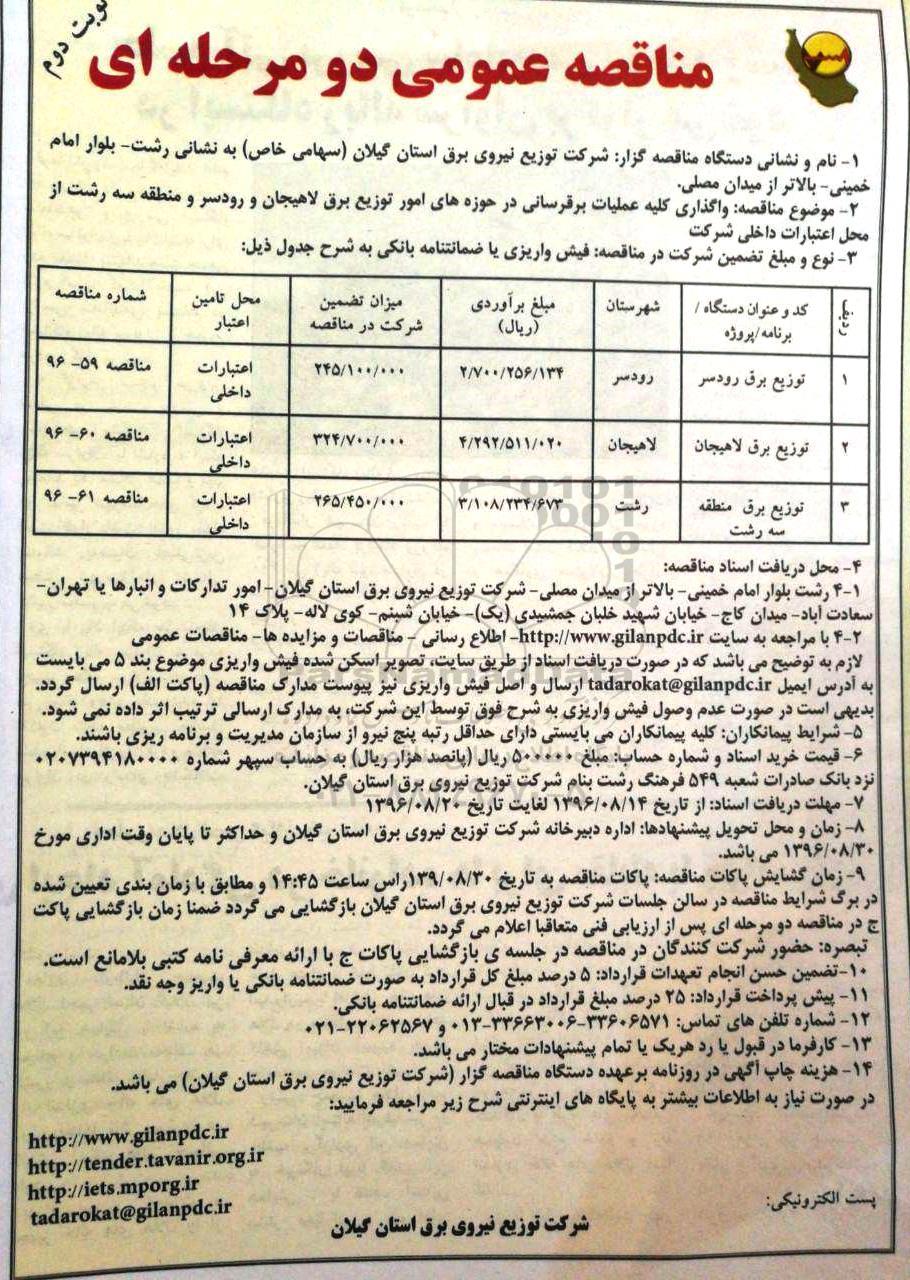 نوبت دوم
مناقصه عمومی دو مرحله ای
۱- نام و نشانی دستگاه مناقصه گزار: شرکت توزیع نیروی برق استان گیلان (سهامی خاص) به نشانی رشت- بلوار امام
خمینی- بالاتر از میدان مصلی.
۲- موضوع مناقصه: واگذاری کلیه عملیات برقرسانی در حوزه های امور توزیع برق لاهیجان و رودسر و منطقه سه رشت از
محل اعتبارات داخلی شرکت
۳- نوع و مبلغ تضمین شرکت در مناقصه: فیش واریزی یا ضمانتنامه بانکی به شرح جدول ذیل:
ردیف | کد و عنوان دستگاه / برنامه/پروژه | شهرستان | مبلغ برآوردی (ریال) | میزان تضمین شرکت در مناقصه | محل تامین اعتبار | شماره مناقصه
۱ | توزیع برق رودسر | رودسر | ۲/۷۰۰/۲۵۶/۱۳۴ | ۲۴۵/۱۰۰/۰۰۰ | اعتبارات داخلی | مناقصه ۵۹- ۹۶
۲ | توزیع برق لاهیجان | لاهیجان | ۴/۲۹۲/۵۱۱/۰۲۰ | ۳۲۴/۷۰۰/۰۰۰ | اعتبارات داخلی | مناقصه ۶۰- ۹۶
۳ | توزیع برق منطقه سه رشت | رشت | ۳/۱۰۸/۲۳۴/۶۷۳ | ۲۶۵/۴۵۰/۰۰۰ | اعتبارات داخلی | مناقصه ۶۱- ۹۶
۴- محل دریافت اسناد مناقصه:
۴-۱ رشت بلوار امام خمینی- بالاتر از میدان مصلی- شرکت توزیع نیروی برق استان گیلان- امور تدارکات و انبارها یا تهران-
سعادت آباد- میدان کاج- خیابان شهید خلبان جمشیدی (یک)- خیابان شبنم- کوی لاله- پلاک ۱۴
۴-۲ با مراجعه به سایت http://www.gilanpdc.ir- اطلاع رسانی - مناقصات و مزایده ها- مناقصات عمومی
لازم به توضیح می باشد که در صورت دریافت اسناد از طریق سایت، تصویر اسکن شده فیش واریزی موضوع بند ۵ می بایست
به آدرس ایمیل tadarokat@gilanpdc.ir ارسال و اصل فیش واریزی نیز پیوست مدارک مناقصه (پاکت الف) ارسال گردد.
بدیهی است در صورت عدم وصول فیش واریزی به شرح فوق توسط این شرکت، به مدارک ارسالی ترتیب اثر داده نمی شود.
۵- شرایط پیمانکاران: کلیه پیمانکاران می بایستی دارای حداقل رتبه پنج نیرو از سازمان مدیریت و برنامه ریزی باشند.
۶- قیمت خرید اسناد و شماره حساب: مبلغ ۵۰۰۰۰۰ ریال (پانصد هزار ریال) به حساب سپهر شماره ۰۲۰۷۳۹۴۱۸۰۰۰۰
نزد بانک صادرات شعبه ۵۴۹ فرهنگ رشت بنام شرکت توزیع نیروی برق استان گیلان.
۷- مهلت دریافت اسناد: از تاریخ ۱۳۹۶/۰۸/۱۴ لغایت تاریخ ۱۳۹۶/۰۸/۲۰
۸- زمان و محل تحویل پیشنهادها: اداره دبیرخانه شرکت توزیع نیروی برق استان گیلان و حداکثر تا پایان وقت اداری مورخ
۱۳۹۶/۰۸/۳۰ می باشد.
۹- زمان گشایش پاکات مناقصه: پاکات مناقصه به تاریخ ۱۳۹/۰۸/۳۰راس ساعت ۱۴:۴۵ و مطابق با زمان بندی تعیین شده
در برگ شرایط مناقصه در سالن جلسات شرکت توزیع نیروی برق استان گیلان بازگشایی می گردد ضمنا زمان بازگشایی پاکت
ج در مناقصه دو مرحله ای پس از ارزیابی فنی متعاقبا اعلام می گردد.
تبصره: حضور شرکت کنندگان در مناقصه در جلسه ی بازگشایی پاکات ج با ارائه معرفی نامه کتبی بلامانع است.
۱۰-تضمین حسن انجام تعهدات قرارداد: ۵ درصد مبلغ کل قرارداد به صورت ضمانتنامه بانکی یا واریز وجه نقد.
۱۱- پیش پرداخت قرارداد: ۲۵ درصد مبلغ قرارداد در قبال ارائه ضمانتنامه بانکی.
۱۲- شماره تلفن های تماس: ۳۳۶۰۶۵۷۱-۳۳۶۶۳۰۰۶-۰۱۳ و ۲۲۰۶۲۵۶۷-۰۲۱
۱۳- کارفرما در قبول یا رد هریک یا تمام پیشنهادات مختار می باشد.
۱۴- هزینه چاپ آگهی در روزنامه برعهده دستگاه مناقصه گزار (شرکت توزیع نیروی برق استان گیلان) می باشد.
در صورت نیاز به اطلاعات بیشتر به پایگاه های اینترنتی شرح زیر مراجعه فرمایید:
http://www.gilanpdc.ir
http://tender.tavanir.org.ir
http://iets.mporg.ir
پست الکترونیکی: tadarokat@gilanpdc.ir
شرکت توزیع نیروی برق استان گیلان